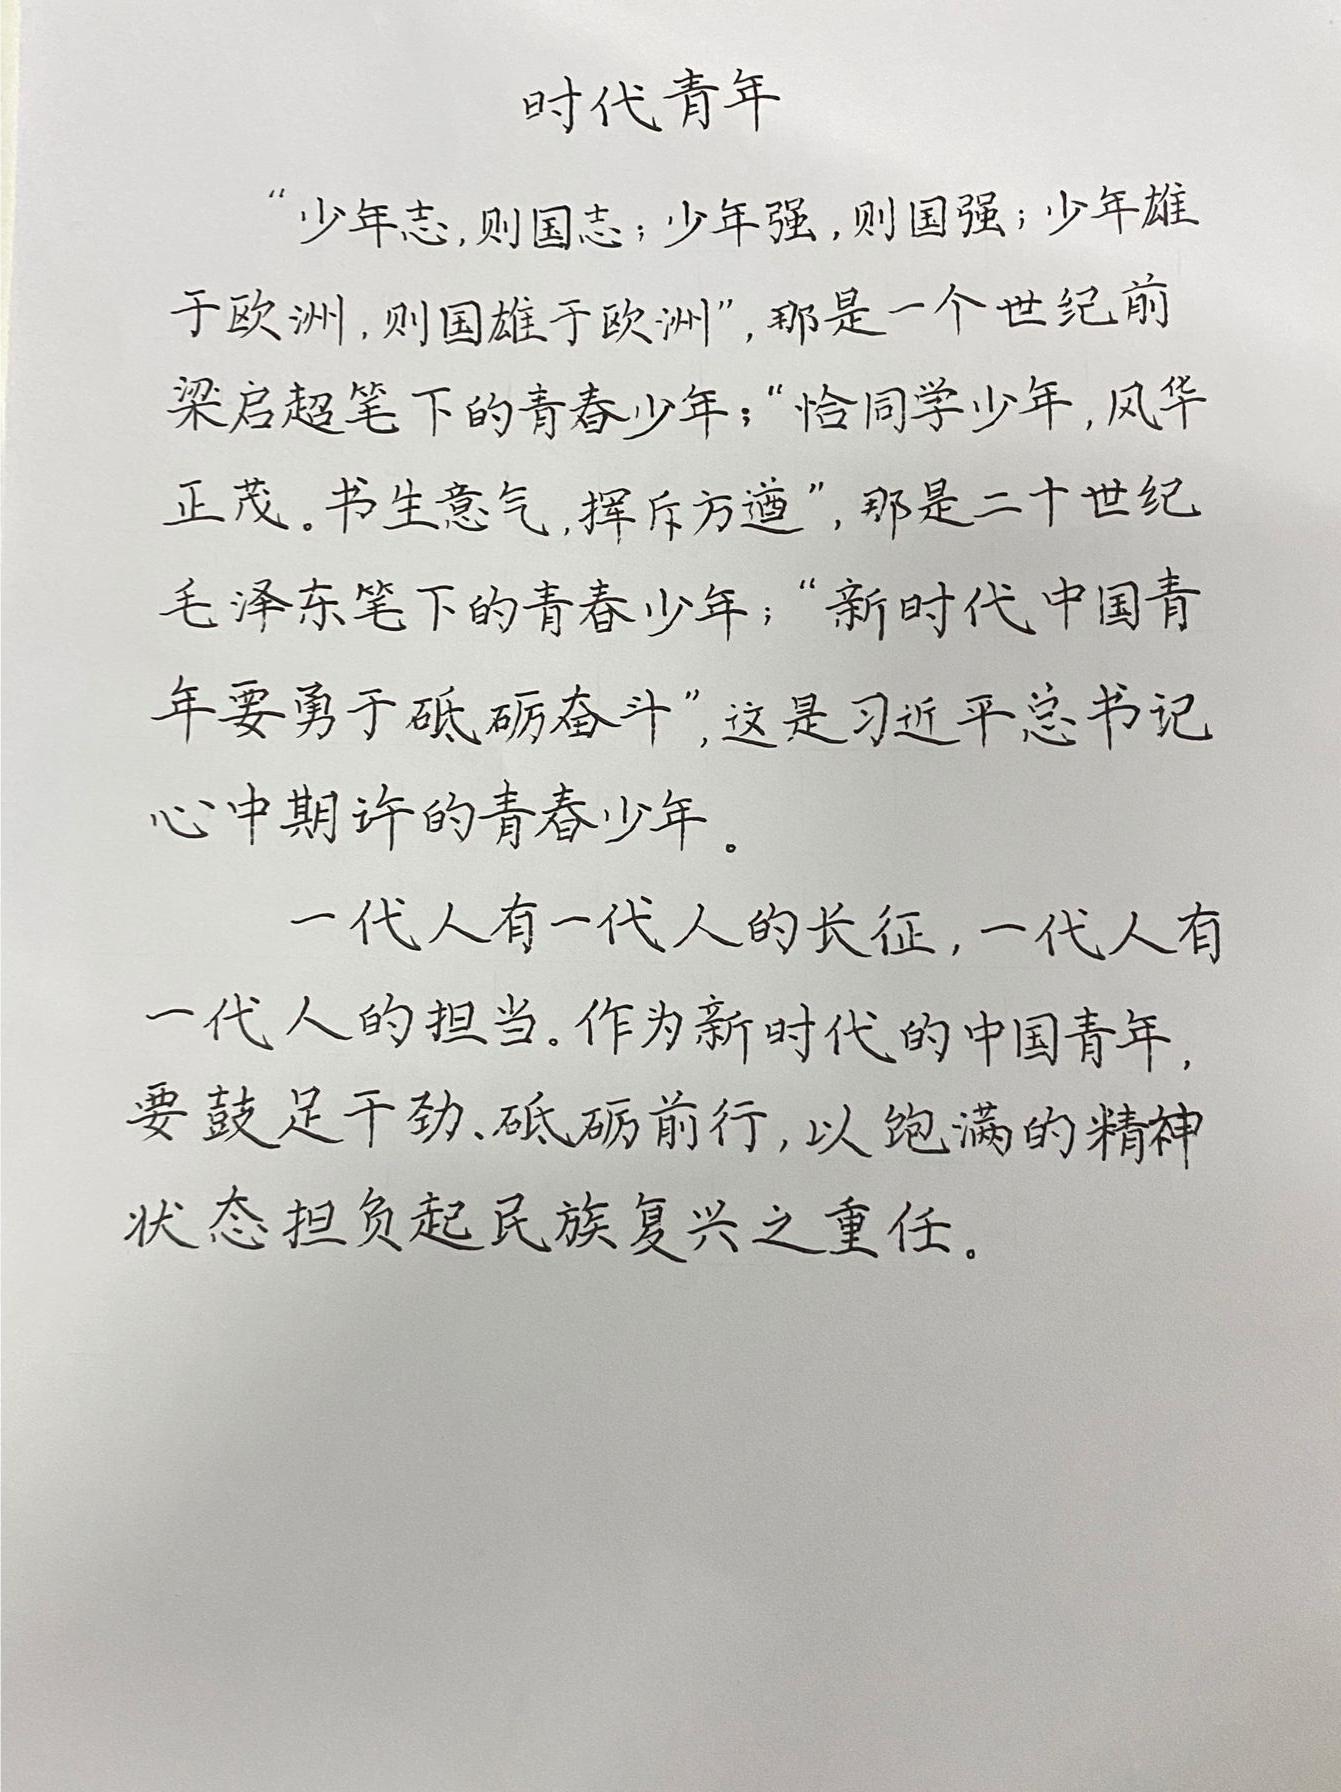 时代青年
“少年志，则国志；少年强，则国强；少年雄
于欧洲，则国雄于欧洲”，那是一个世纪前
梁启超笔下的青春少年；“恰同学少年，风华
正茂。书生意气，挥斥方遒”，那是二十世纪
毛泽东笔下的青春少年；“新时代中国青
年要勇于砥砺奋斗”，这是习近平总书记
心中期许的青春少年。
一代人有一代人的长征，一代人有
一代人的担当。作为新时代的中国青年，
要鼓足干劲、砥砺前行，以饱满的精神
状态担负起民族复兴之重任。